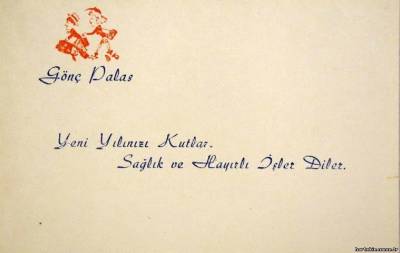 Gönç Palas
Yeni Yılınızı Kutlar.
Sağlık ve Hayırlı İşler Diler.